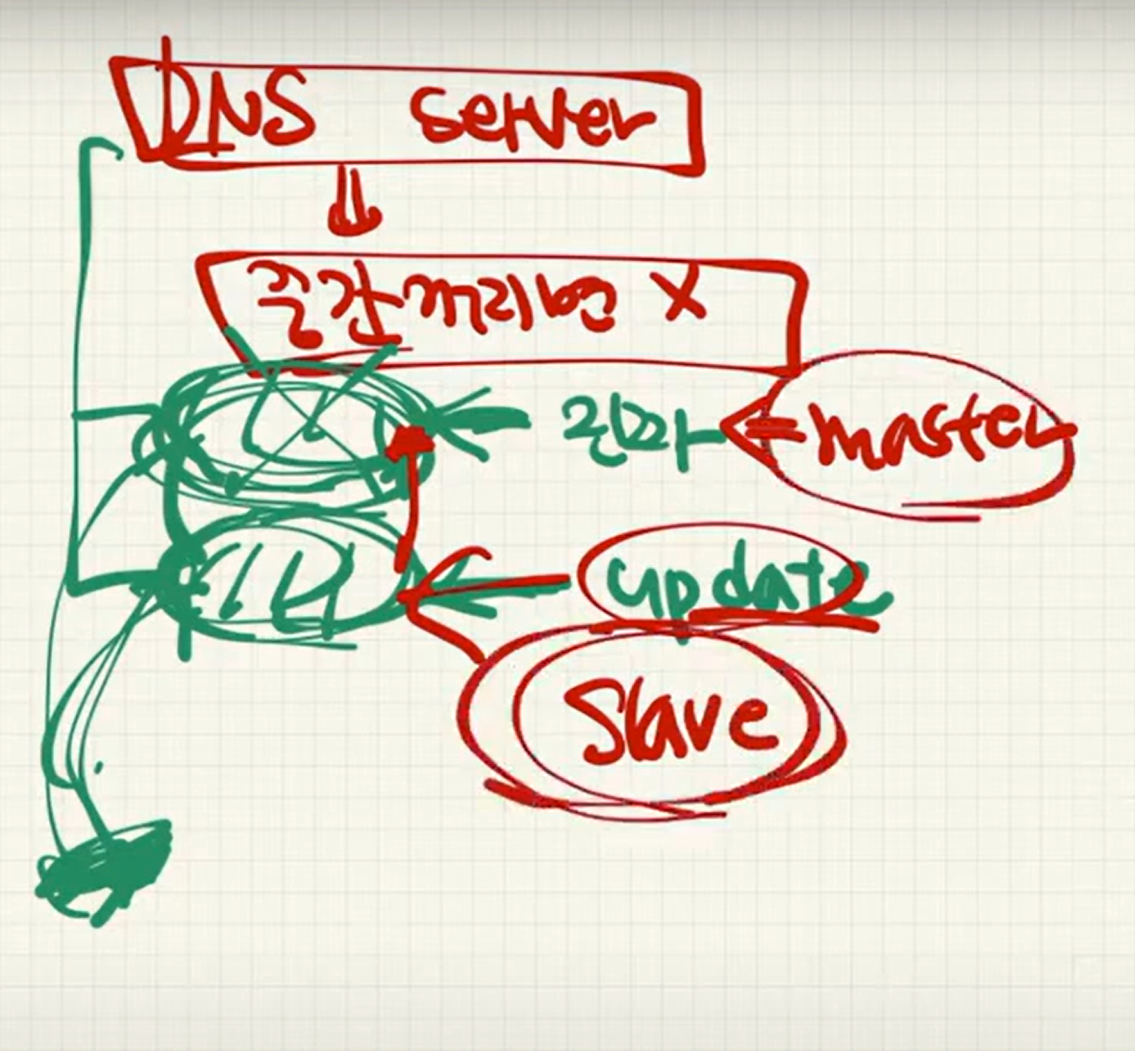 DNS server
중간께리면 X
진짜 master
update
Slave